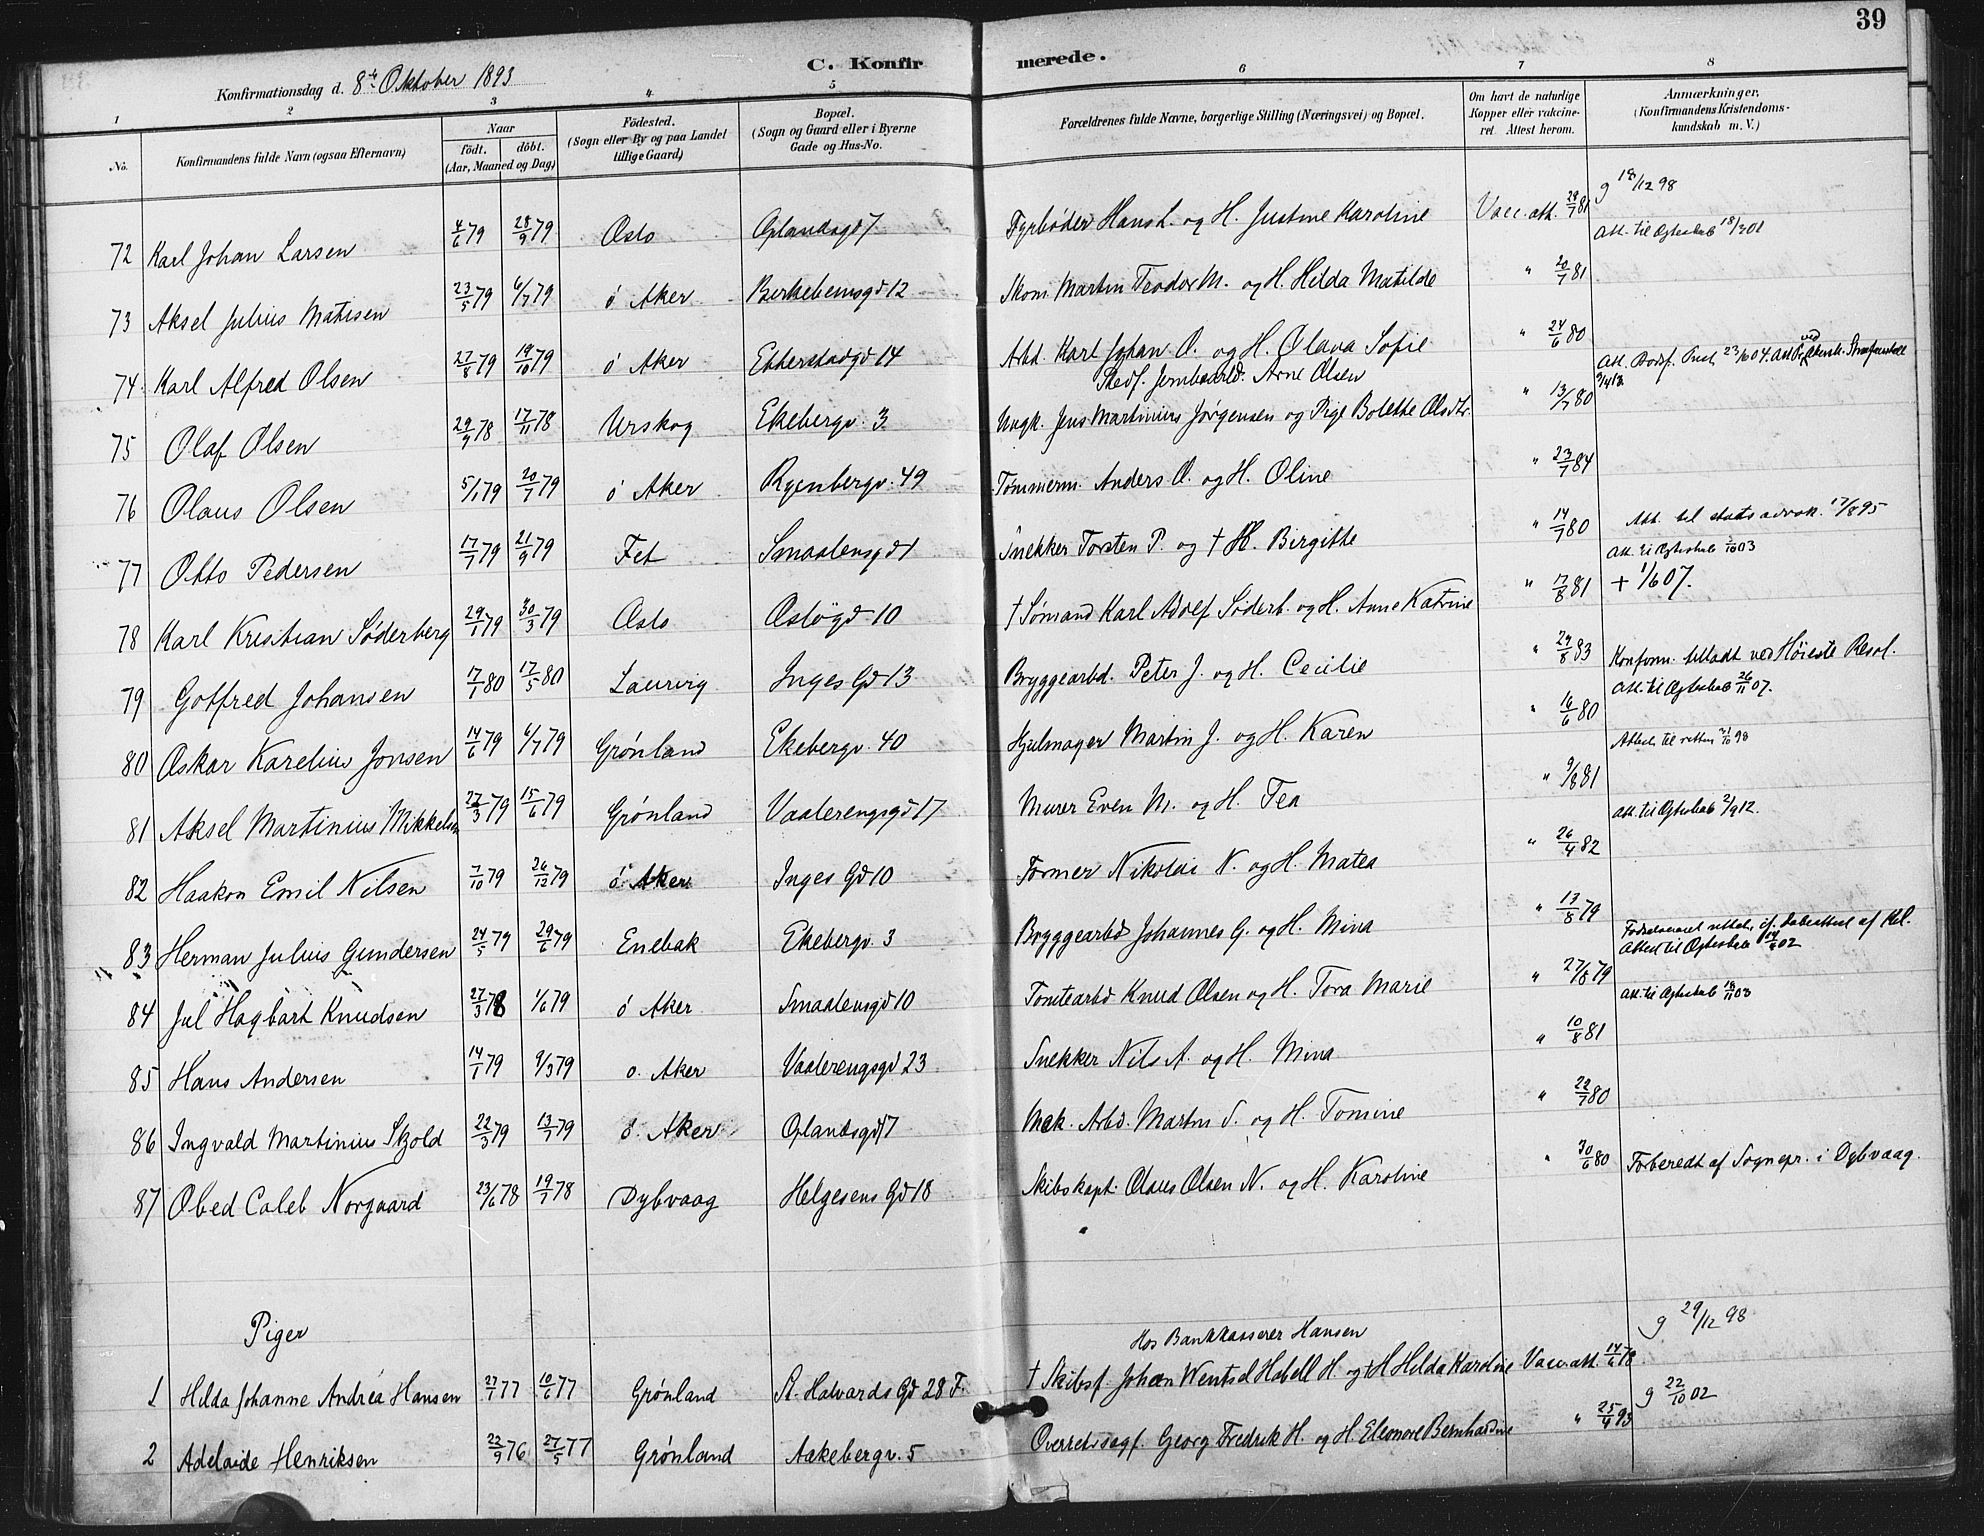 39
C. Konfirmerede.
Konfirmationsdag d. 8de Oktober 1893
1 2 3 4 5 6 7 8
No. Konfirmandens fulde Navn (ogsaa Efternavn) Naar født. døbt. (Aar, Maaned og Dag) Fødested. (Sogn eller By og paa Landet tillige Gaard) Bopæl. (Sogn og Gaard eller i Byerne Gade og Hus-No. Forældrenes fulde Navne, borgerlige Stilling (Næringsvei) og Bopæl. Om havt de naturlige Kopper eller vakcineret. Attest herom. Anmærkninger. (Konfirmandens Kristendomskundskab m. V.)
g 18/12 98
72 Karl Johan Larsen 4/6 79 28/9 79 Oslo Oplandsgd 7 Fyrbøder Hans L. og H. Justine Karoline Vacc. att. 29/7 81 Att. til Ægteskab 18/3 01
73 Aksel Julius Matisen 23/5 79 6/7 79 ø Aker Birkebeinsgd 12 Skom. Martin Teodor M. og H. Hilda Matilde " 20/7 81
74 Karl Alfred Olsen 27/8 79 19/10 79 ø Aker Etterstadgd 14 Arbd. Karl Johan O. og H. Olava Sofie " 24/6 80
Stedf. Jernbanearbd. Arne Olsen
75 Olaf Olsen 29/9 78 17/11 78 Urskog Ekebergv. 3 Ungk. Jens Martinius Jørgensen og Pige Bolette Olsdtr. " 13/7 80
76 Olaus Olsen 5/1 79 20/7 79 ø Aker Ryenbergv. 49 Tømmerm. Anders O. og H. Oline " 23/7 84
77 Otto Pedersen 17/7 79 21/9 79 Fet Smaalensgd 1 Snekker Torsten P. og † H. Birgitte " 14/7 80 Att. til statsadvok. 17/8 95
Att. til Ægteskab 3/10 03
78 Karl Kristian Søderberg 29/1 79 30/3 79 Oslo Oslogd 10 † Sømand Karl Adolf Søderb. og H. Anne Katrine " 17/8 81 + 1/6 07.
79 Gotfred Johansen 17/1 80 17/5 80 Laurvig Inges Gd 13 Bryggearbd. Peter J. og H. Cecilie " 29/8 93 Konform. tilladt ved Høieste Resol.
Att. til Ægteskab 26/11 07.
80 Oskar Karelius Jonsen 14/6 79 6/7 79 Grønland Ekebergv. 40 Hjulmager Martin J. og H. Karen " 16/6 80 Attest til retten 21/10 98
81 Aksel Martinius Mikkelsen 27/3 79 15/6 79 Grønland Vaalerengsgd 17 Murer Even M. og H. Tea " 9/8 81
Att. til Ægteskab 2/9 12.
82 Haakon Emil Nilsen 7/10 79 26/12 79 ø Aker Inges Gd 10 Former Nikolai N. og H. Matea " 26/4 82
83 Herman Julius Gundersen 24/5 79 29/6 79 Enebak Ekebergv. 3 Bryggearbd Johannes G. og H. Mina " 13/8 79
Attest til Ægteskab 14/4 02
84 Jul Hagbart Knudsen 27/3 78 1/6 79 ø Aker Smaalensgd 10 Tomtearbd Knud Olsen og H. Tora Marie " 27/8 79 Att. til Ægteskab 18/11 03
85 Hans Andersen 14/1 79 9/3 79 ø. Aker Vaalerengsgd 23 Snekker Nils A. og H. Mina " 10/8 81
86 Ingvald Martinius Skjold 22/3 79 13/7 79 ø. Aker Oplandsgd 7 Mek. Arbd. Martin S. og H. Tomine " 22/7 80
87 Obed Caleb Norgaard 23/6 78 19/7 78 Dybvaag Helgesens Gd 18 Skibskapt. Olaus Olsen N. og H. Karoline " 30/6 80 Forberedt af Sognepr. i Dybvaag.
Piger
Hos Bankkasserer Hansen g 29/12 98
1 Hilda Johanne Andréa Hansen 27/1 77 10/6 77 Grønland St. Halvards Gd 28 F. † Skibsf. Johan Wentsel Habell H. og † H Hilda Karoline Vacc. att. 14/6 78.
g 22/10 02
2 Adelaide Henriksen 22/9 76 27/5 77 Grønland Aakebergv. 5 Overretssagf. Georg Fredrik H. og H. Eleonore Bernhardine " 25/4 93